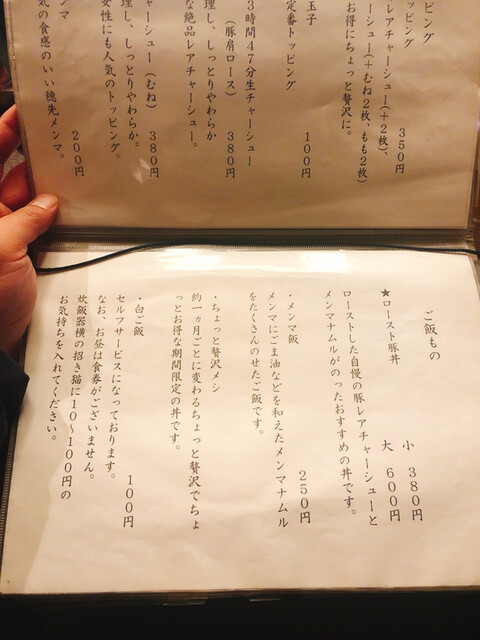 ピング
トッピング
レアチャーシュー(+2枚)、 350円
ーシュー(+むね2枚、もも2枚)
お得にちょっと贅沢に。
玉子 100円
定番トッピング
3時間47分生チャーシュー
(豚肩ロース) 380円
理し、しっとりやわらか
な絶品レアチャーシュー。
ャーシュー(むね) 380円
理し、しっとりやわらか。
女性にも人気のトッピング。
ンマ 200円
気の食感のいい穂先メンマ。
ご飯もの
★ロースト豚丼 小 380円
大 600円
ローストした自慢の豚レアチャーシューと
メンマナムルがのったおすすめの丼です。
・メンマ飯 250円
メンマにごま油などを和えたメンマナムル
をたくさんのせたご飯です。
・ちょっと贅沢メシ
約一ヵ月ごとに変わるちょっと贅沢でちょ
っとお得な期間限定の丼です。
・白ご飯 100円
セルフサービスになっております。
なお、お昼は食券がございません。
炊飯器横の招き猫に10～100円の
お気持ちを入れてください。